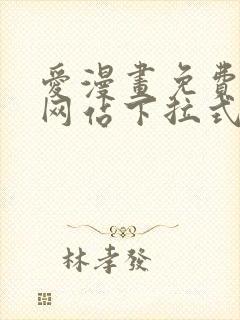 愛漫畫免費
网佔下拉式
林孝發